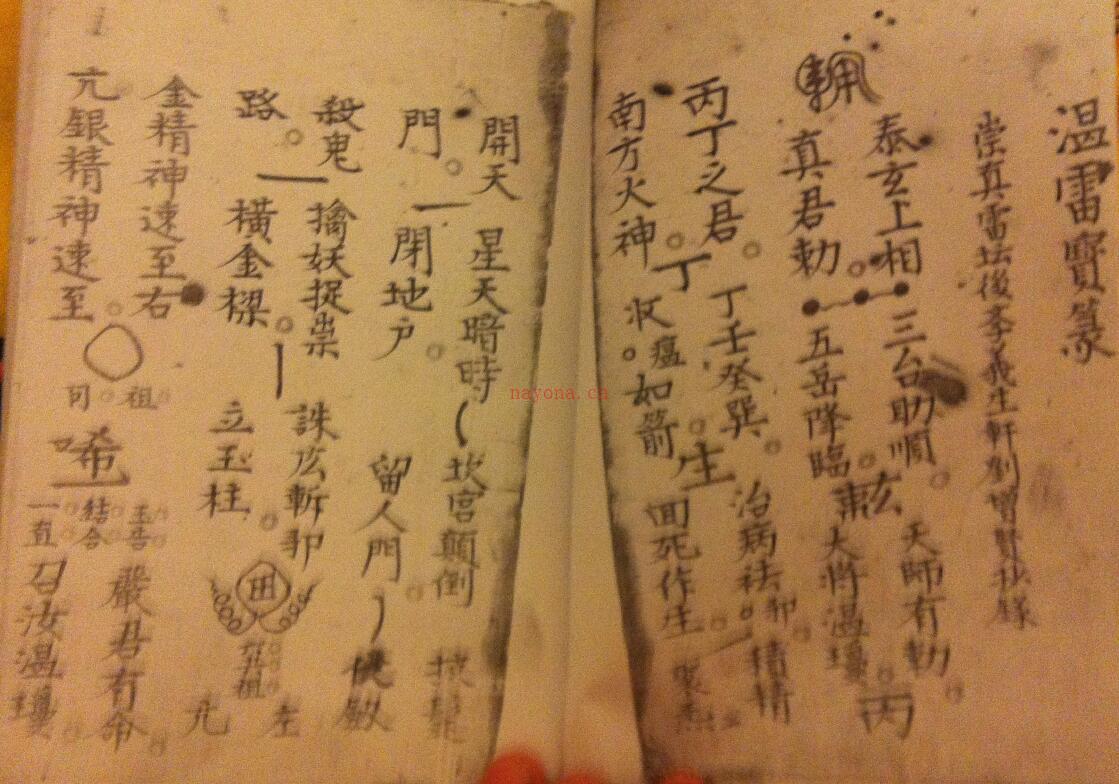 温雷寶篆
崇真雷坛後李義生軒
泰玄上相。三台助順。天師有勅。
真君勅。五岳降臨。大將温瓊。丙
丙丁之君。丁壬癸巽。治病祛邪。
南方火神。丁收瘟。如箭。生回死作生。
開天 星天暗時 坎宮顛倒
門。閉地户。留人門
殺鬼 擒妖捉祟 誅斬邪 左
路。橫金樑。立玉柱。祖 亢
金精神速至右 祖 嚴君有命。
亢銀精神速至。司 結合 一直 召汝温瓊。
nayona.cn